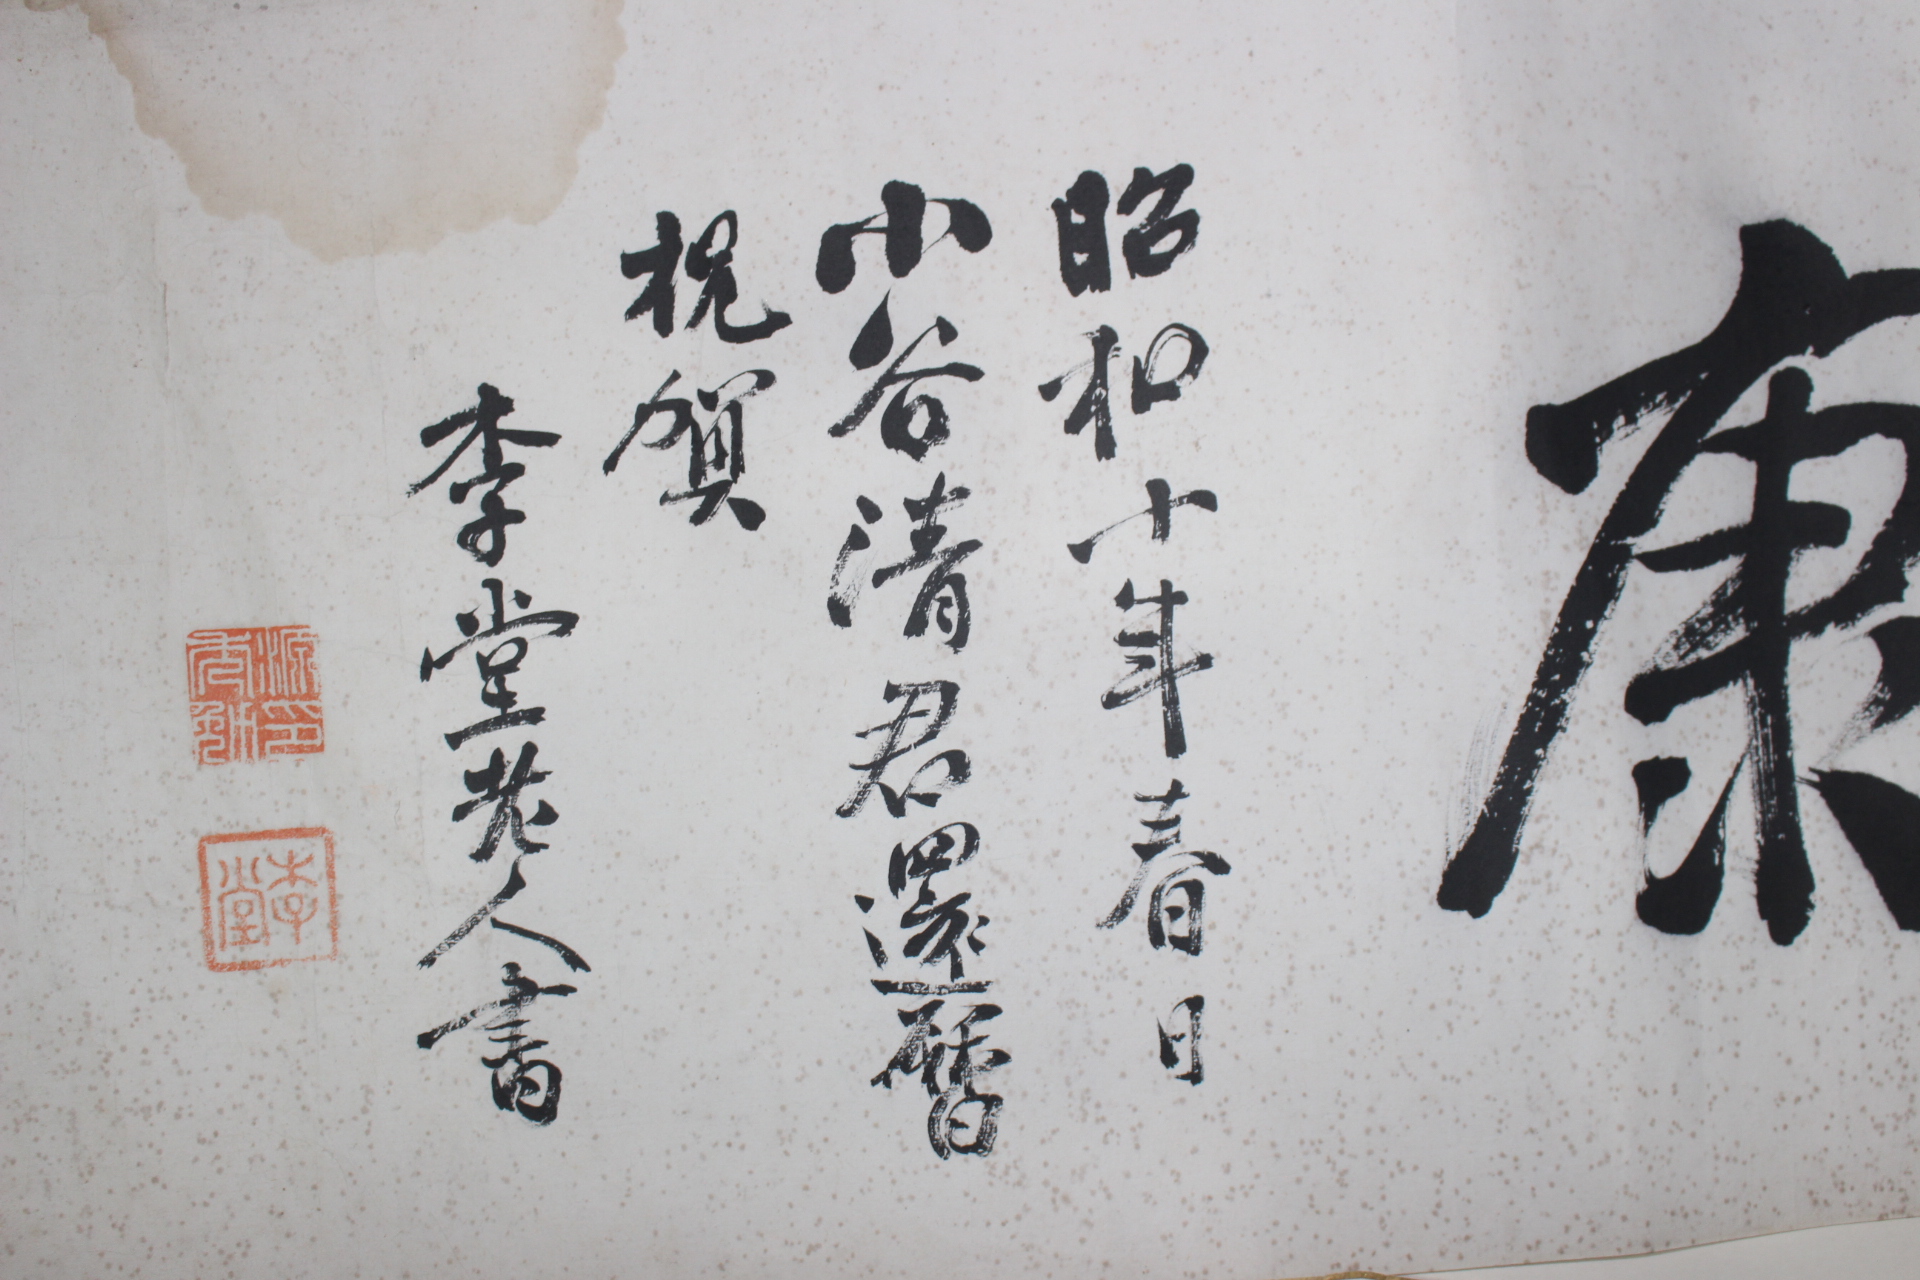 康
昭和十年春日
小谷清君還暦
祝賀
李堂老人書
李堂